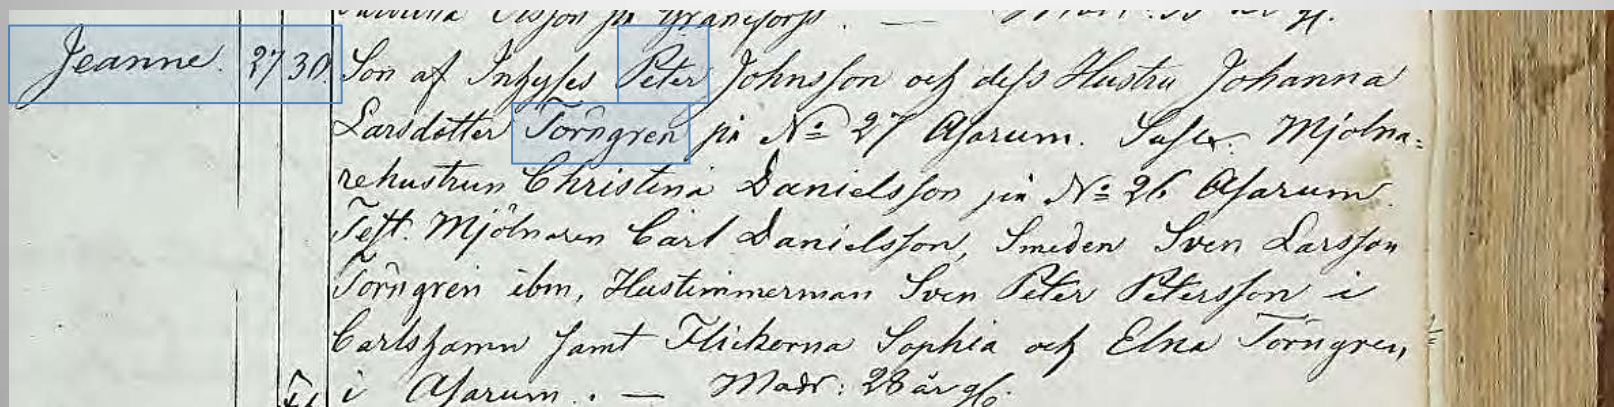 Olsson på Granefors. — Madr: 33 år gl.
Jeanne. 27 30. Son af Inhyses Peter Johnsson och dess Hustru Johanna
Larsdotter Törngren på No 27 Asarum. Susc. Mjölna-
rehustrun Christina Danielsson på No 26 Asarum.
Test. Mjölnaren Carl Danielsson, Smeden Sven Larsson
Törngren ibm, Hustimmerman Sven Peter Petersson i
Carlshamn samt Flickorna Sophia och Elna Törngren,
i Asarum. — Madr: 28 år gl.